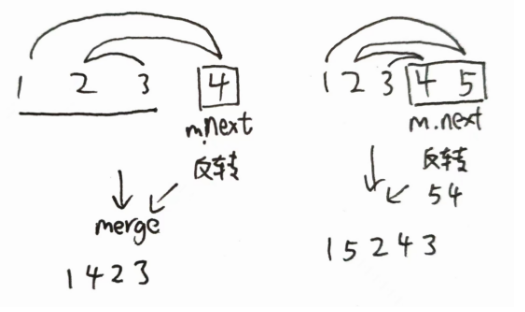 1 2 3 4
m.next
反转
merge
1 4 2 3
1 2 3 4 5
m.next
反转
5 4
1 5 2 4 3